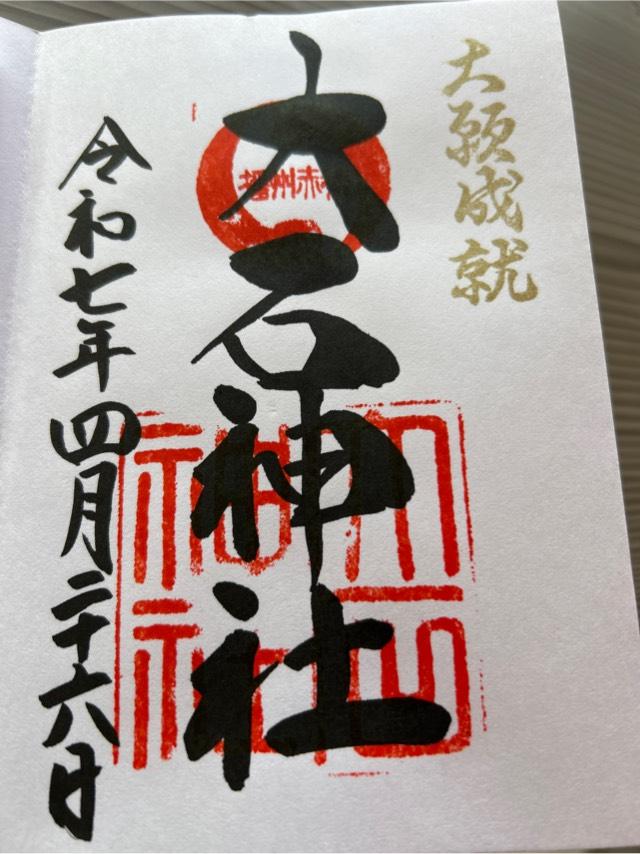 大願成就
大石神社
播州赤穂
大石神社
令和七年四月二十六日